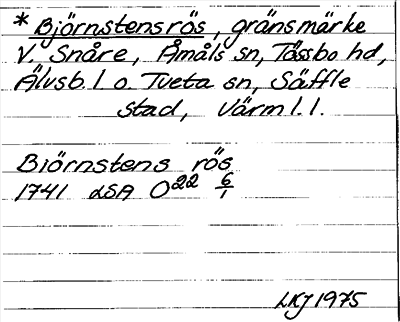 * Björnstensrös, gränsmärke
V. Snåre, Åmåls sn, Tössbo hd,
Älvsb. l o. Tveta sn, Säffle
stad, Värml. l.
Biörnstens rös
1741 LSA O22 6/1
LKJ 1975